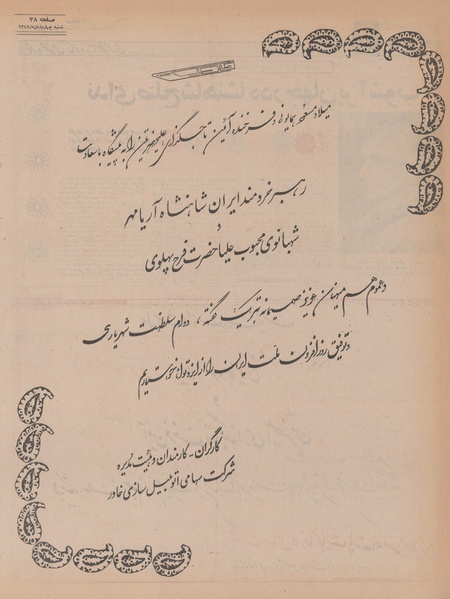 صفحه ۳۸
میلاد مسعود همایونی و فرخنده آئین تاجگذاری اعلیحضرتین را به پیشگاه با سعادت
رهبر خردمند ایران شاهنشاه آریامهر
و
شهبانوی محبوب علیاحضرت فرح پهلوی
و عموم هم میهنان عزیز صمیمانه تبریک گفته ، دوام سلطنت شهریاری
و توفیق روزافزون ملت ایران را از ایزد توانا خواستاریم
کارگران - کارمندان و هیئت مدیره
شرکت سهامی اتومبیل سازی خاور